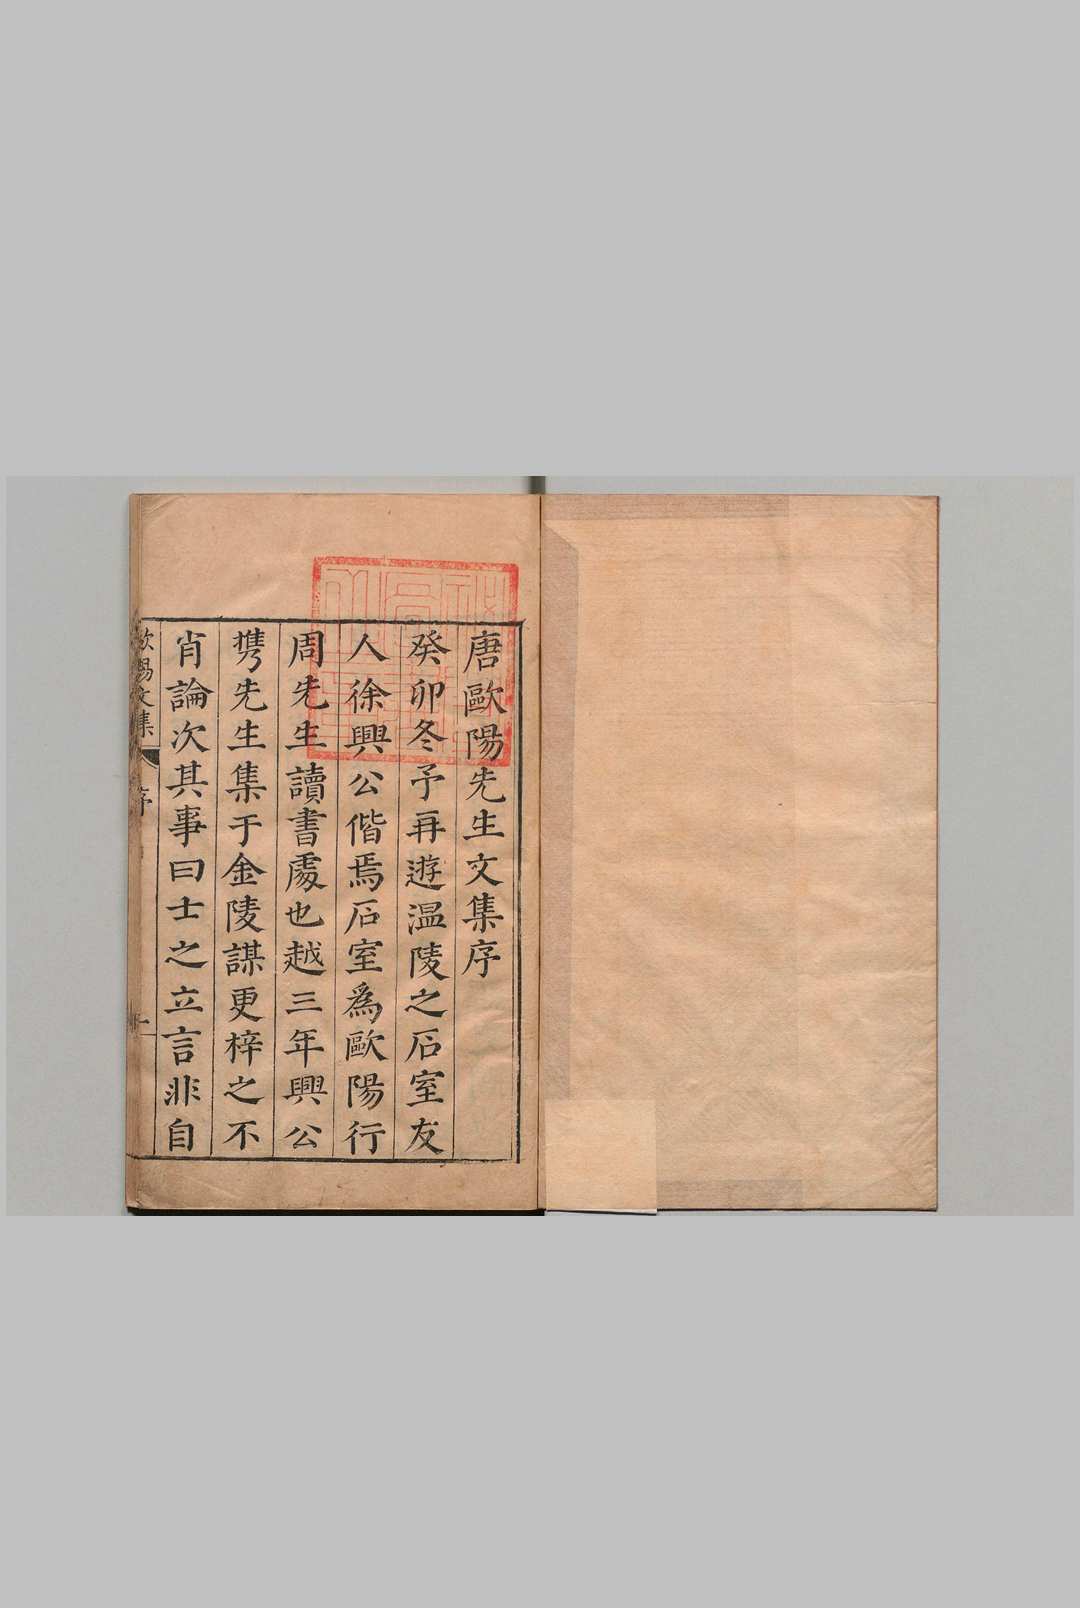 唐歐陽先生文集序
癸卯冬予再遊温陵之石室友
人徐興公偕焉石室爲歐陽行
周先生讀書處也越三年興公
携先生集于金陵謀更梓之不
肖論次其事曰士之立言非自
歐陽文集
序
一